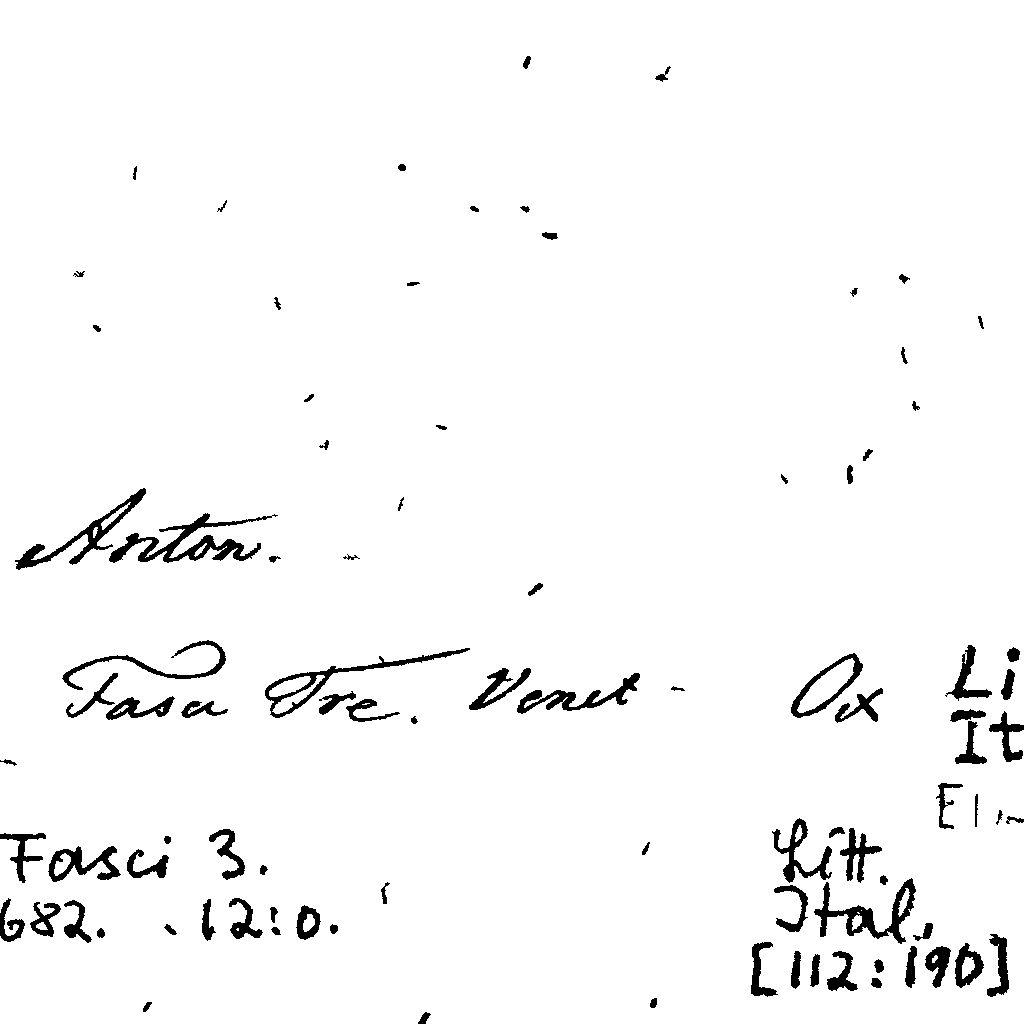 Anton.
Fasci Tre. Venet - Ox
Li
It
Fasci 3.
682. . 12:0.
Litt.
Ital.
[112:190]